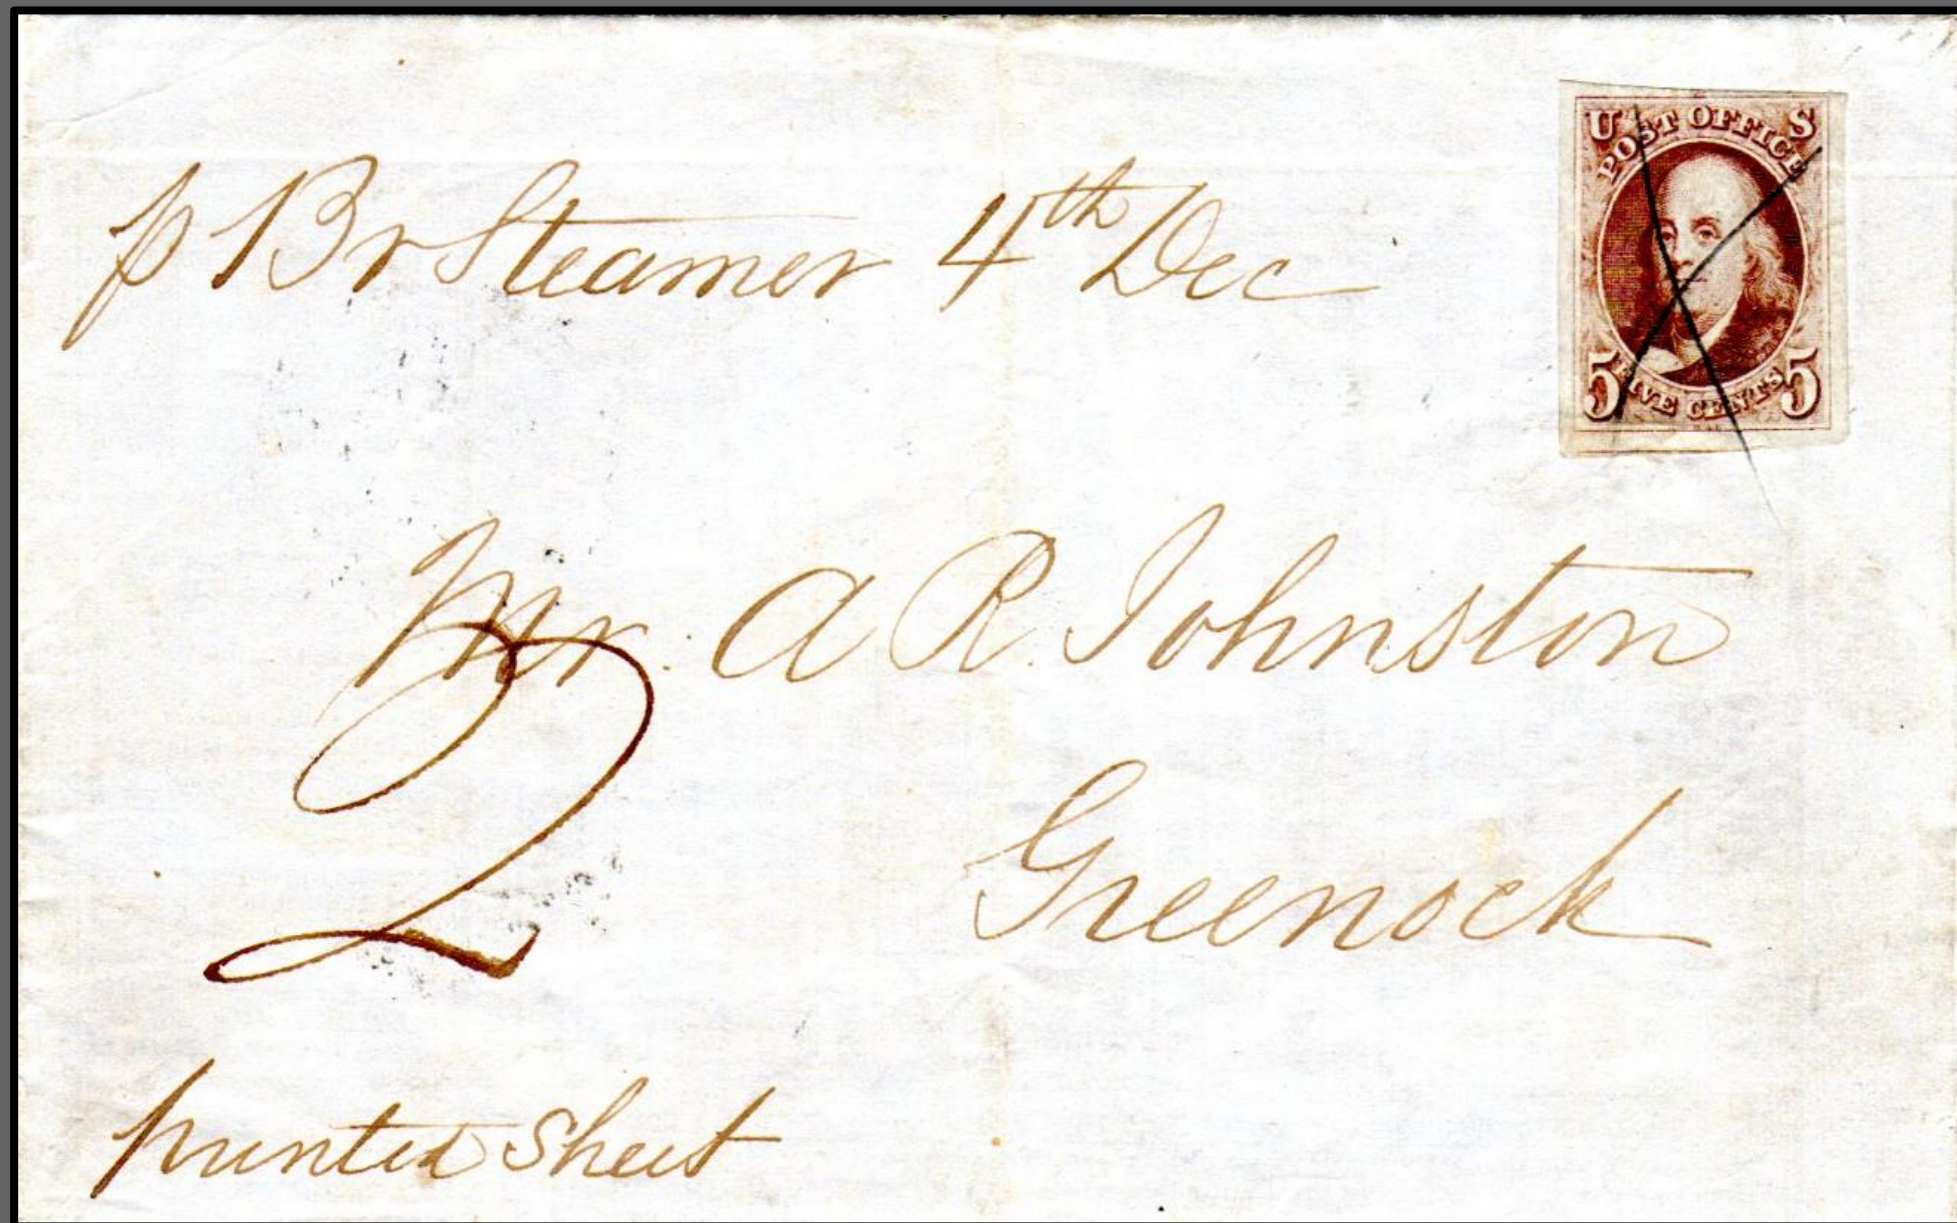 p Br Steamer 4th Dec
U S
POST OFFICE
5 FIVE CENTS 5
Mr. A R. Johnston
2
Greenock
printed sheet